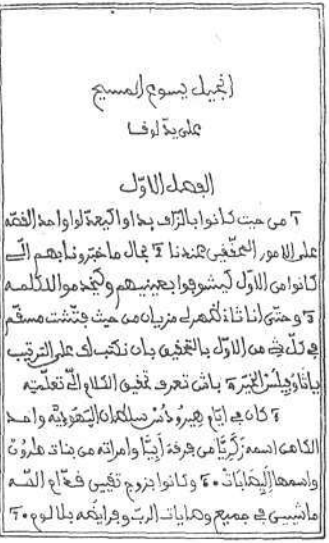 إنجيل يسوع المسيح
على يد لوفا
الفصل الاوّل
١ من حيت كانوا بالزاف بداوا كيعدّلوا واحد القصّة
على الامور المحقّقين عندنا ٢ بحال ما خبّرونا بهم الّي
كانوا من الاوّل كيشوفوا بعينيهم وكيخدموا للكلمة
٣ وحتّى انا ظهر لي مزيان من حيت فتّشت مسقّم
في كلّ شي من الاوّل بالتحقيق بان نكتب لك على الترتيب
يا ثاوفيلس الخيّر ٤ باش تعرف تحقيق الكلام الّي تعلّمتيه
٥ كان في ايّام هيرودس سلطان اليهوديّة واحد
الكاهن اسمه زكريّا من فرقة أبيّا وامراته من بنات هارون
واسمها إليصابات ٦ وكانوا بزوج تقيين قدّام الله
ماشيين في جميع وصايات الربّ وفرايضه بلا لوم ٧